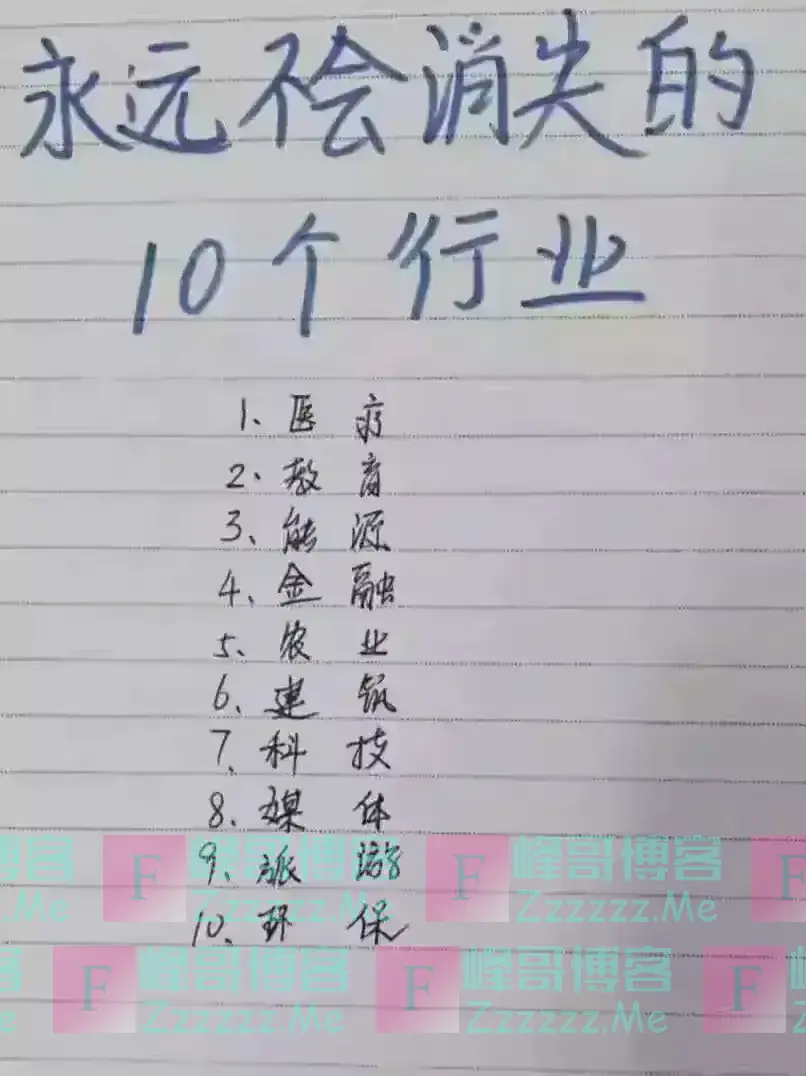 永远不会消失的
10个行业
1、医疗
2、教育
3、能源
4、金融
5、农业
6、建筑
7、科技
8、媒体
9、旅游
10、环保
博客 F 峰哥博客 F 峰哥博客 F
z.Me Zzzzzz.Me Zzzzzz.Me
F 峰哥博客 F 峰哥博客 F
e Zzzzzz.Me Zzzzzz.Me